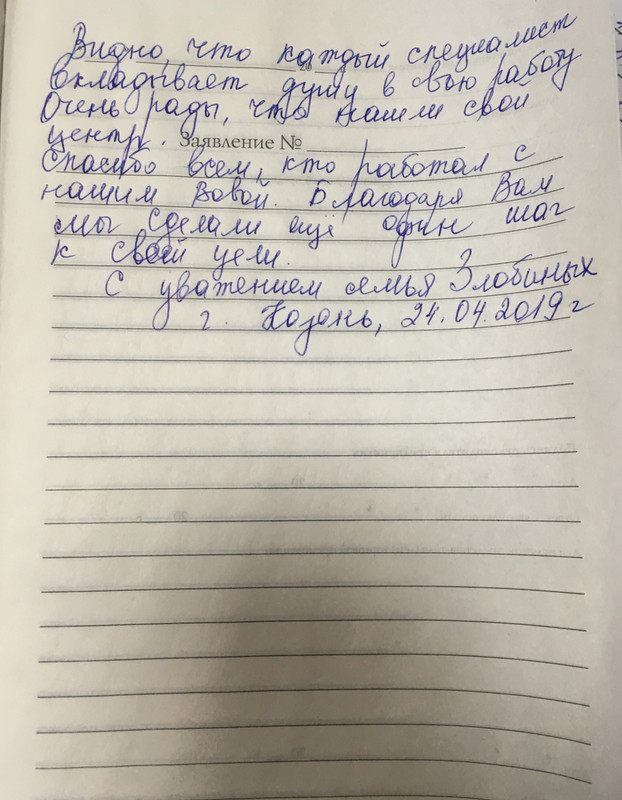 Видно, что каждый специалист
вкладывает душу в свою работу
Очень рады, что нашли свой
центр. Заявление №
Спасибо всем, кто работал с
нашим Вовой. Благодаря Вам
мы сделали ещё один шаг
к своей цели.
С уважением семья Злобиных
г. Казань, 24.04.2019 г